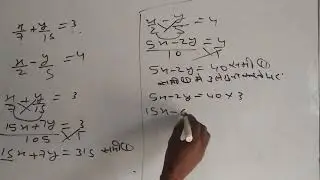 x/7 + y/15 = 3
x/2 - y/5 = 4
15x+7y/105 = 3/1
15x+7y = 315 समी①
x/2 - y/5 = 4
5x-2y/10 = 4/1
5x-2y = 40 समी ②
5x-2y = 40 × 3
15x-6